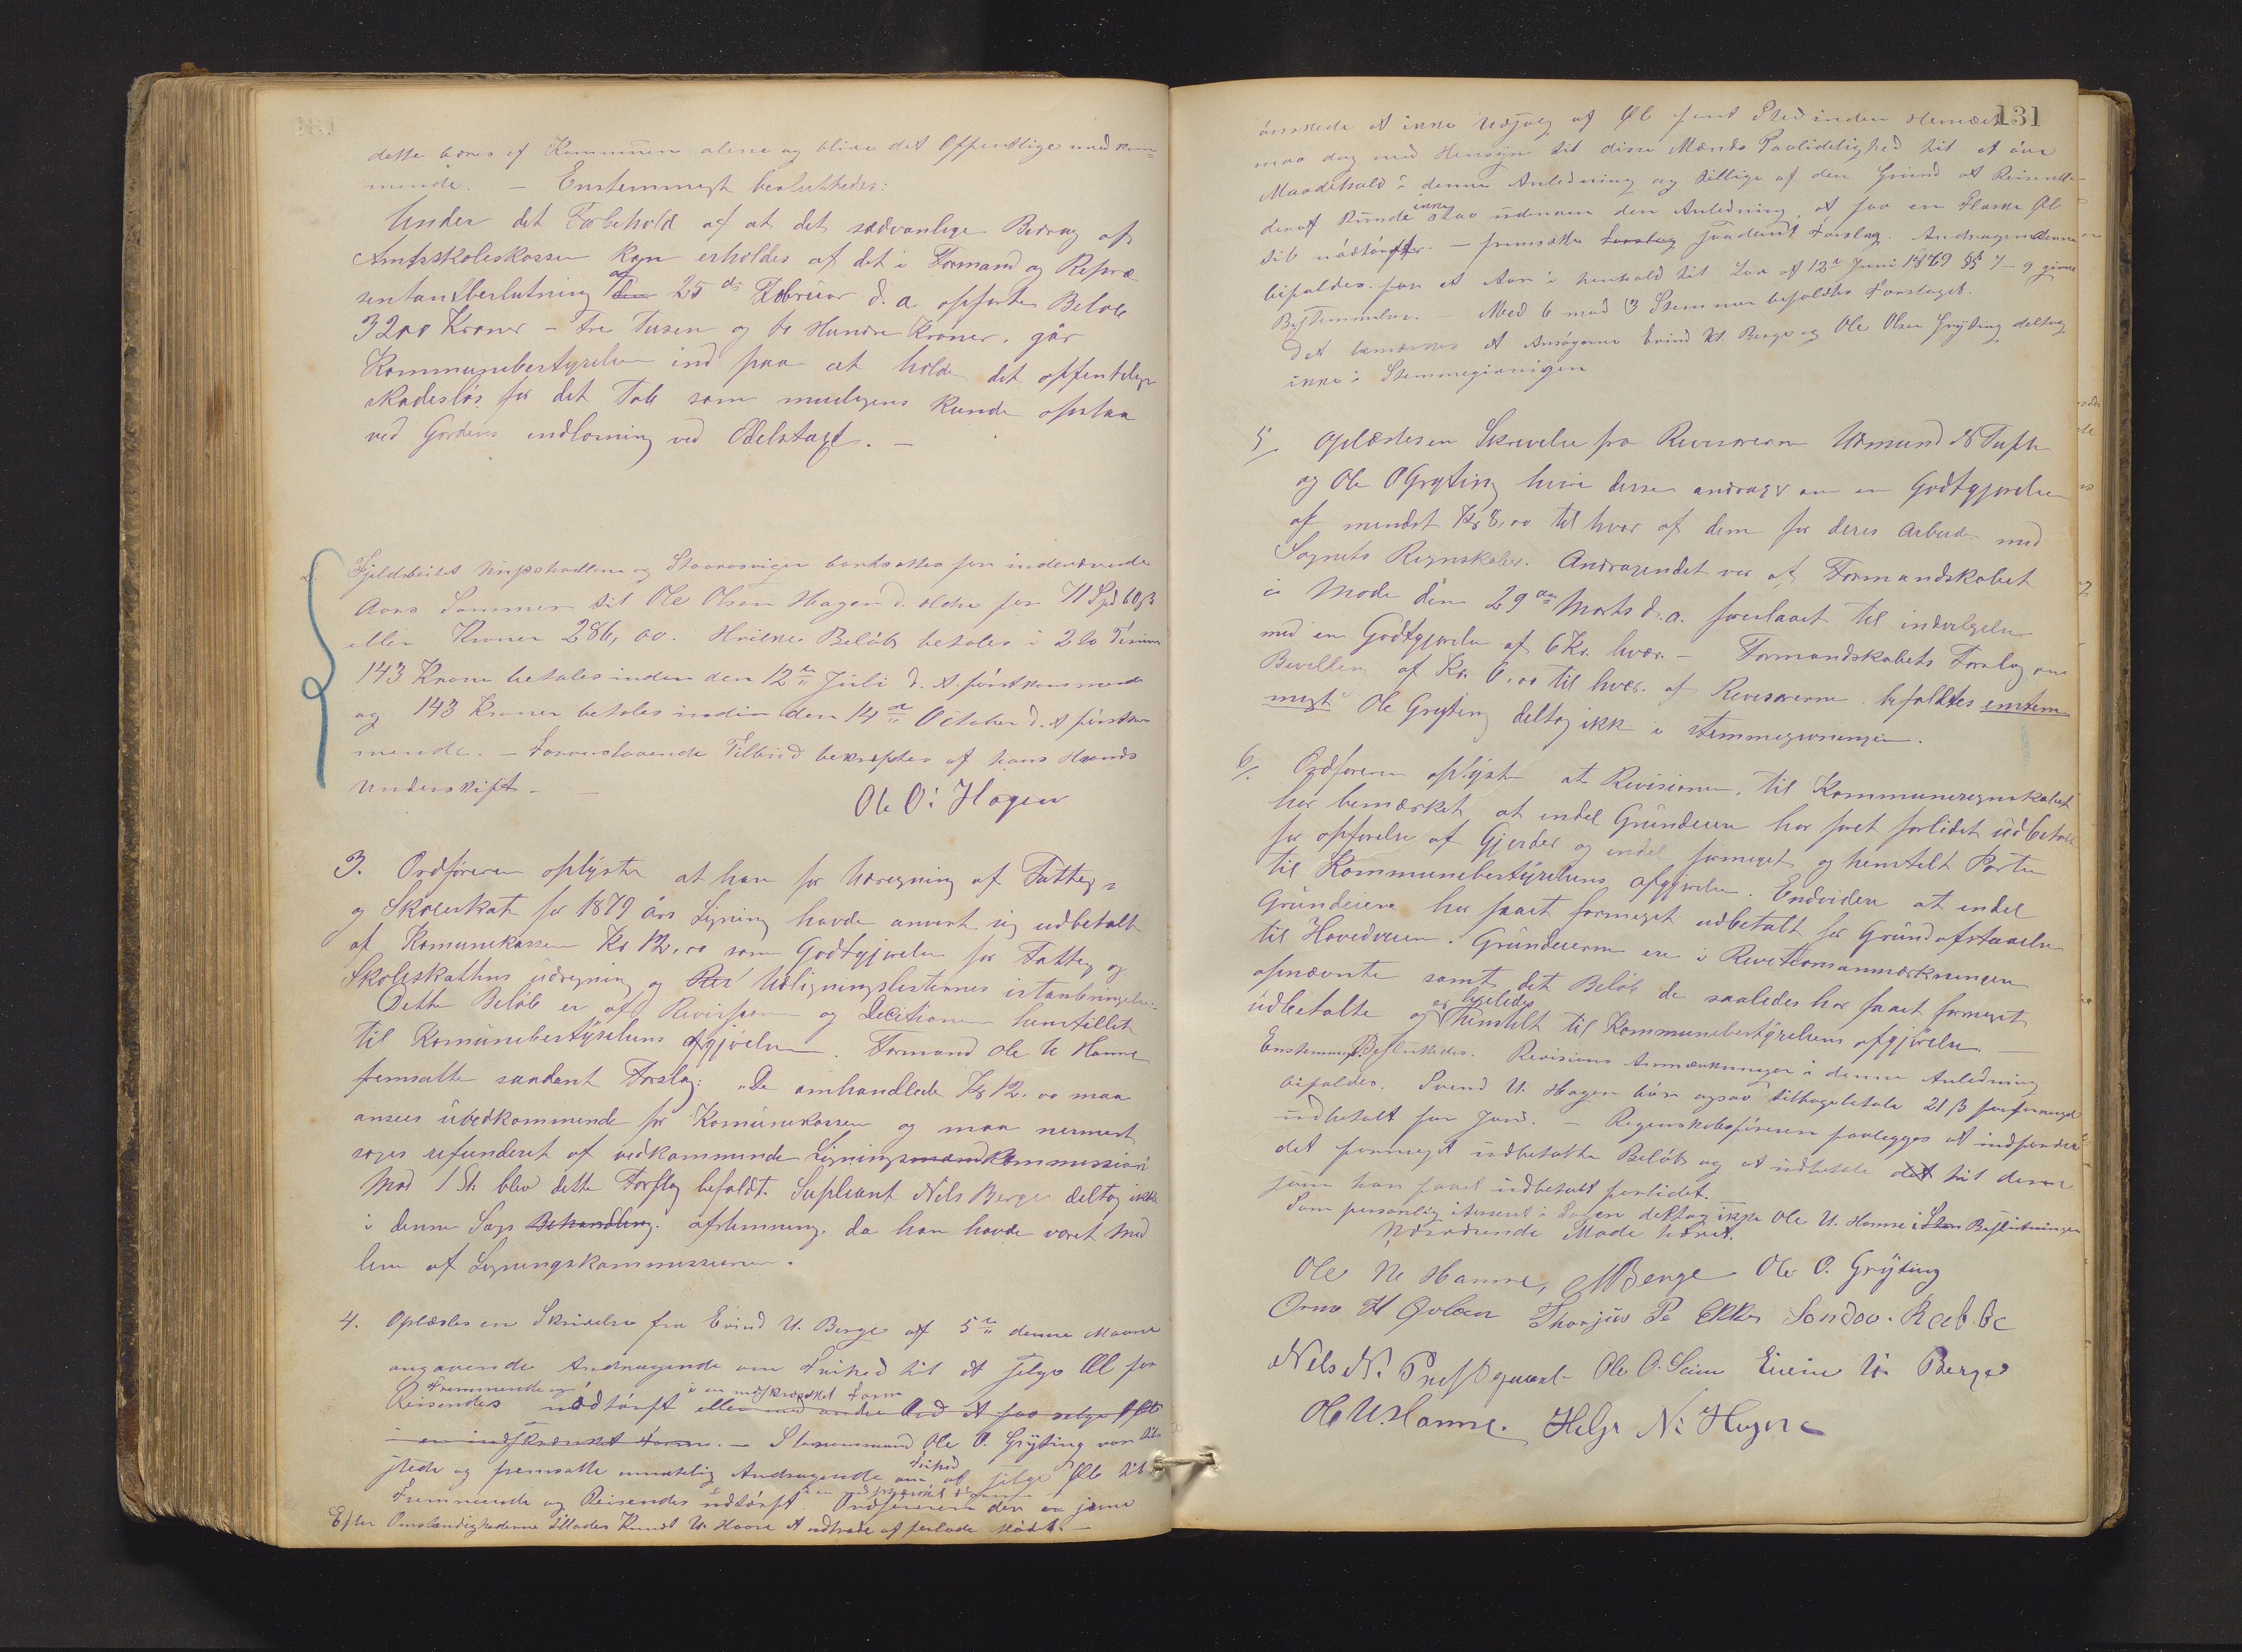 dette bæres af Kommunen alene og blive det Offentlige uvedkom-
mende. — Enstemmigt besluttedes:
Under det Forbehold af at det sædvanlige Bidrag af
Amtsskolekassen kan erholdes af det i Formand og Repræ
sentantbeslutning af 25de Februar d. a. opførte Beløb
3200 Kroner – Tre Tusen og to Hundre Kroner, går
Kommunebestyrelsen ind paa at holde det offentlige
skadesløs for det Tab som muligens kunde opstaa
ved Gordens indløsning ved Odelstagt. —
Fjeldbeitet og bortsattes for indeværende
Aars Sommer til Ole Olsen Hagen d. eldre for 71 Spd 60 β
eller Kroner 286,00. Hvilke Beløb betales i 2to Terminer
143 Krone betales inden den 12te Juli d. A. førstkommende
og 143 Kroner betales inden den 14de October d. A førstkom
mende. — Foranstaaende Tilbud bekræftes af hans Haands
Underskift —
Ole O: Hagen
3. Ordføreren oplyste at han for Udregning af Fattig-
og Skoleskat for 1879 års Ligning havde anvist sig udbetalt
af Komunekassen Kr 12,00 som Godtgjørelse for Fattig og
Skoleskattens udregning og Udligningslisternes istanbringelse.
Dette Beløb er af Revisjonen og Decitionen henstillet
til Komunebestyrelsens afgjørelse. Formand Ole U Hamre
fremsatte saadant Forslag: "De omhandlede Kr 12,00 maa
ansees uvedkommende for Komunekassen og maa nermest
søges refunderet af vedkommende Lignings kommission
Mod 1 St. blev dette Forslag befaldt. Supleant Nels Berge deltog ikke
i denne Sags Behandling. afstemning, da han havde været med
lem af Ligningskommissionen.
4. Oplæstes en Skrivelse fra Eivind U. Berge af 5te denne Maaned
angaaende Andragende om Frihed til at selge Øl for
Fremmende og i en indskrænket Form
Reisendes nødtørft eller ved at faa selge Øl
i en indskrænket Form. — Ole O. Grÿting var
stede og fremsatte mundtlig Andragende om Frihed at selge Øl til
Fremmende og Reisendes nødtørft i en indskrænket Ordføreren den
Efter Omstændighederne tillades Knudt U. Haavre at udtræde af
131
ønskede at ikke Udsalg af Øl fant Sted inden Herredet
maa dog med Hensyn til disse Mænds Paalidelighed til at øve
Maadehold i denne Anledning og tillige af den Grund at Reisende
deraf kunde ikke staa udenom den Anledning, at faa en Flaske Øl
til nødtørft. — fremsætte Forslag saadant Forslag. Andragenderne
bifaldes for et Aar i henhold til Lov af 12te Juni 1869 §§ 7–9 givne
Bestemmelser. — Med 6 mod 3 Stemmer befaldtes Forslaget.
Det bemærkes at Ansøgerne Eivind U. Berge og Ole Olsen Grÿting deltog
ikke i Stemmegivningen
5/ Oplæstes en Skrivelse fra Revisorerne Aamund N Tufte
og Ole O Gryting hvori disse andrager om en Godtgjørelse
af mindst Kr 8,00 til hver af dem for deres Arbeide med
Sognets Regnskaber. Andragendet var af Formandskabet
i Møde den 29de Marts d. a. foreslaaet til indvilgelse
med en Godtgjørelse af 6 Kr. hver. — Formandskabets Forslag om
Bevilling af Kr. 6,00 til hver af Revisorerne befaldtes enstem
migt Ole Gryting deltog ikke i Stemmegivningen.
6/. Ordføreren oplyste at Revisionen til Kommuneregnskabet
har bemærket at endel Grundeiere har faaet forlidet udbetalt
for opførelse af Gjerder og endel formeget og henstilt Posten
til Kommunebestyrelsens afgjørelse. Endvidere at endel
Grundeiere har faaet formeget udbetalt for Grundafstaaelse
til Hovedveien. Grundeierne ere i Revitionsanmærkningen
opnævnte samt det Beløb de saaledes har faaet formeget
udbetalte og er ligeledes henstilt til Kommunebestyrelsens afgjørelse. —
Enstemmigt Besluttedes. Revisions Anmærkninger i denne Anledning
bifaldes. Svend U. Hagen bør ogsaa tilbagebetale 21 β for formeget
udbetalt for Jord. — Regnskabsføreren paalegges at indfordre
det formeget udbetalte Beløb og at udbetale det til denne
som har faaet udbetalt forlidet.
Som personlig interesseret i Sagen deltog ikke Ole U. Hamre i Beslutningen
Nærværende Møde hævet.
Ole N Hamre, NBerge Ole O. Grÿting
Orm H Ørlan Thorjus P. Ekker Sondov. Rabbe
Nels N. Ole O. Seim Eivin U. Berge
Ole U. Hamre. Helge N: Hagen